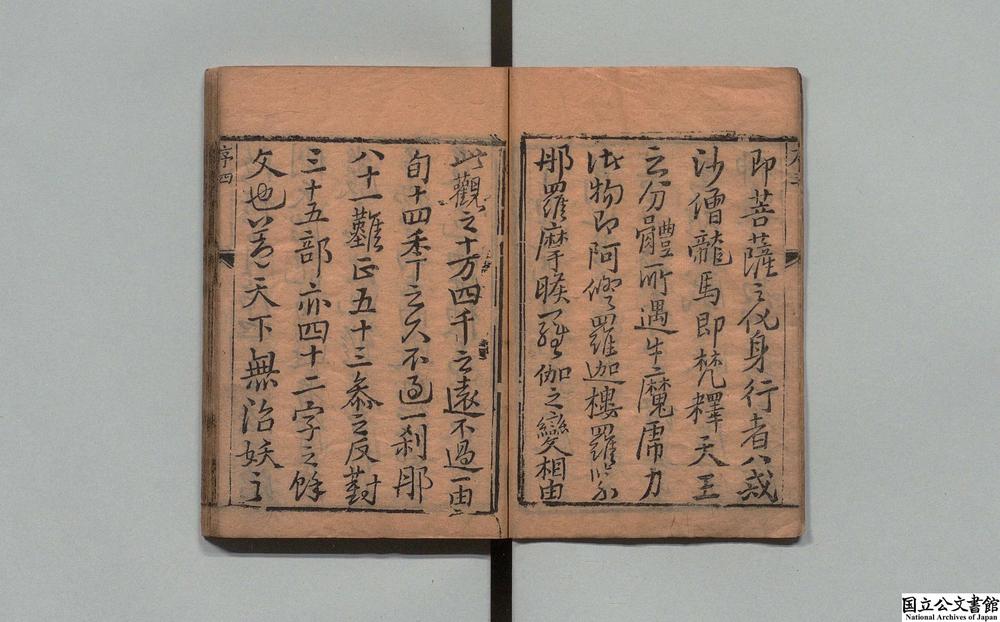 即菩薩之化身行者八戒
沙僧龍馬即梵釋天王
之分體所遇牛魔虎力
諸物即阿修羅迦樓羅緊
那羅摩睺羅伽之變相由
此觀之十方四千之遠不過一由
旬十四年之久不過一剎那
八十一難正五十三參之反對
三十五部亦四十二字之餘
文也蓋天下無治妖之
序四
国立公文書館
National Archives of Japan